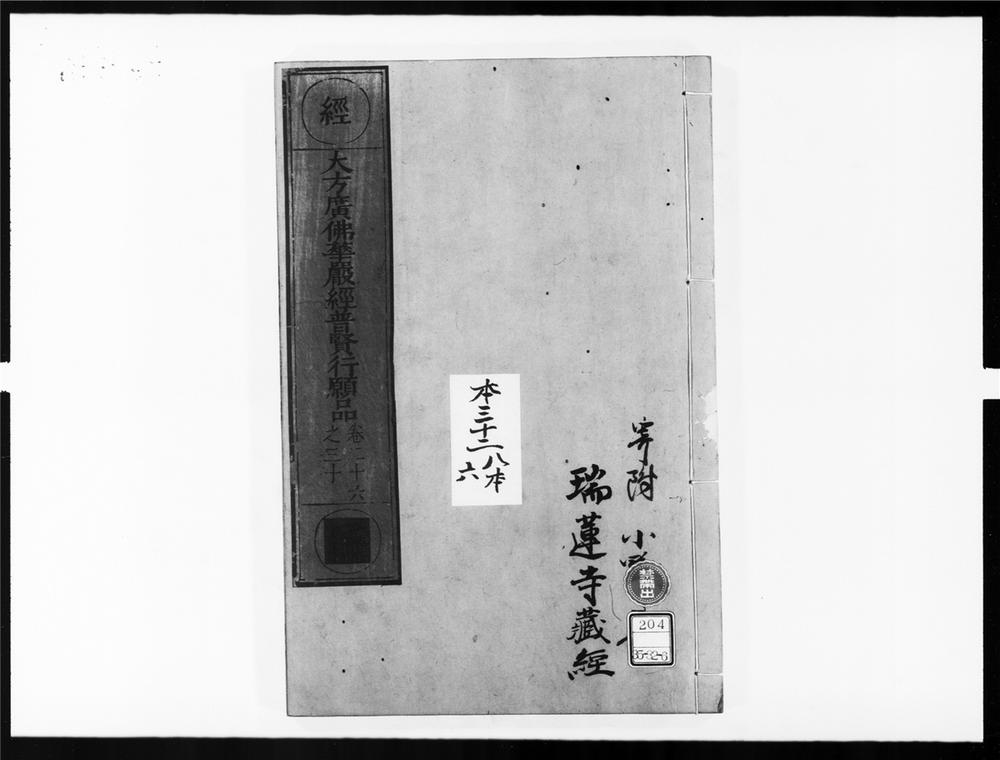 經
大方廣佛華嚴經普賢行願品
卷二十六
之三十
本三十二八本
六
寄附 小
瑞蓮寺藏經
禁帶出
204
35-32-6